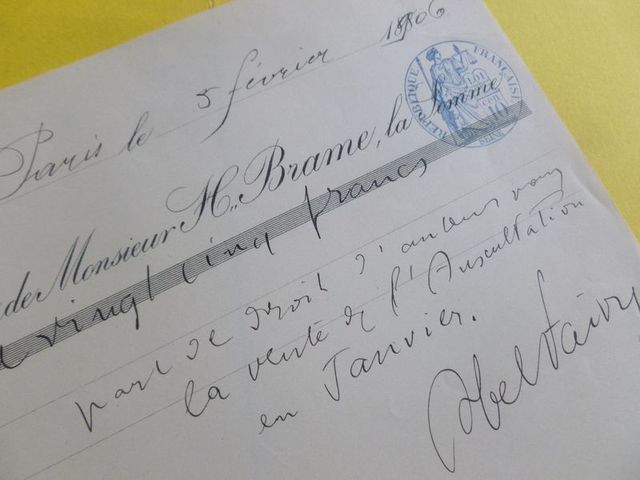 Paris le 5 février 1906
RÉPUBLIQUE FRANÇAISE
LOI
de Monsieur H. Brame, la Somme
vingt cinq francs
part de droit d'auteurs pour
la vente de l'Auscultation
en Janvier.
Abel Faivre